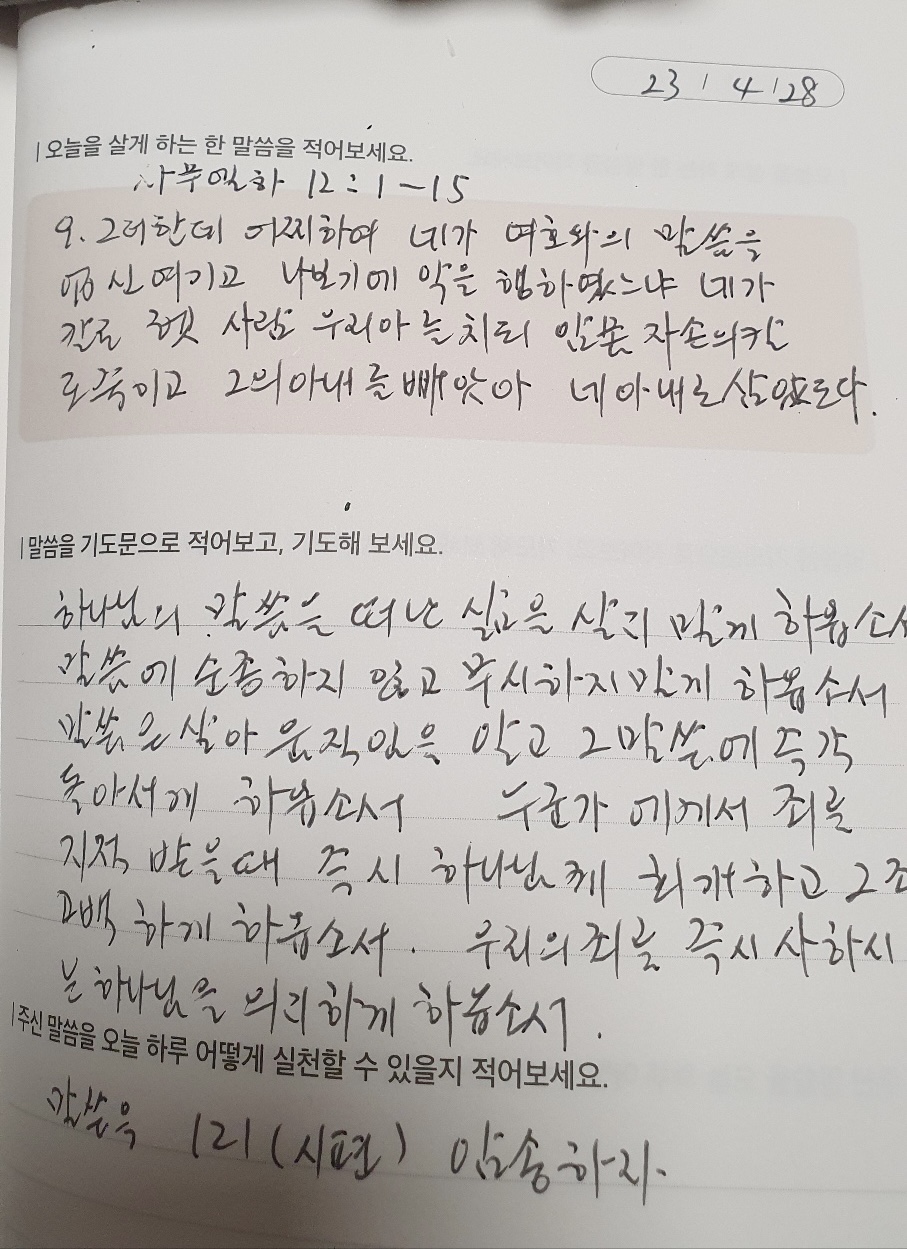 23 / 4 / 28
오늘을 살게 하는 한 말씀을 적어보세요.
사무엘하 12:1-15
9. 그러한데 어찌하여 네가 여호와의 말씀을
업신 여기고 나보기에 악을 행하였느냐 네가
칼로 헷 사람 우리아를 치되 암몬 자손의 칼
로 죽이고 그의 아내를 빼앗아 네 아내로 삼았도다.
말씀을 기도문으로 적어보고, 기도해 보세요.
하나님의 말씀을 떠난 삶을 살지 말게 하옵소서
말씀에 순종하지 않고 무시하지 말게 하옵소서
말씀은 살아 움직임을 알고 그 말씀에 즉각
돌아서게 하옵소서 누군가에게서 죄를
지적 받을때 즉시 하나님께 회개하고 그 죄
고백하게 하옵소서. 우리의 죄를 즉시 사하시
는 하나님을 의지하게 하옵소서.
주신 말씀을 오늘 하루 어떻게 실천할 수 있을지 적어보세요.
말씀을 121 (시편) 암송하자.